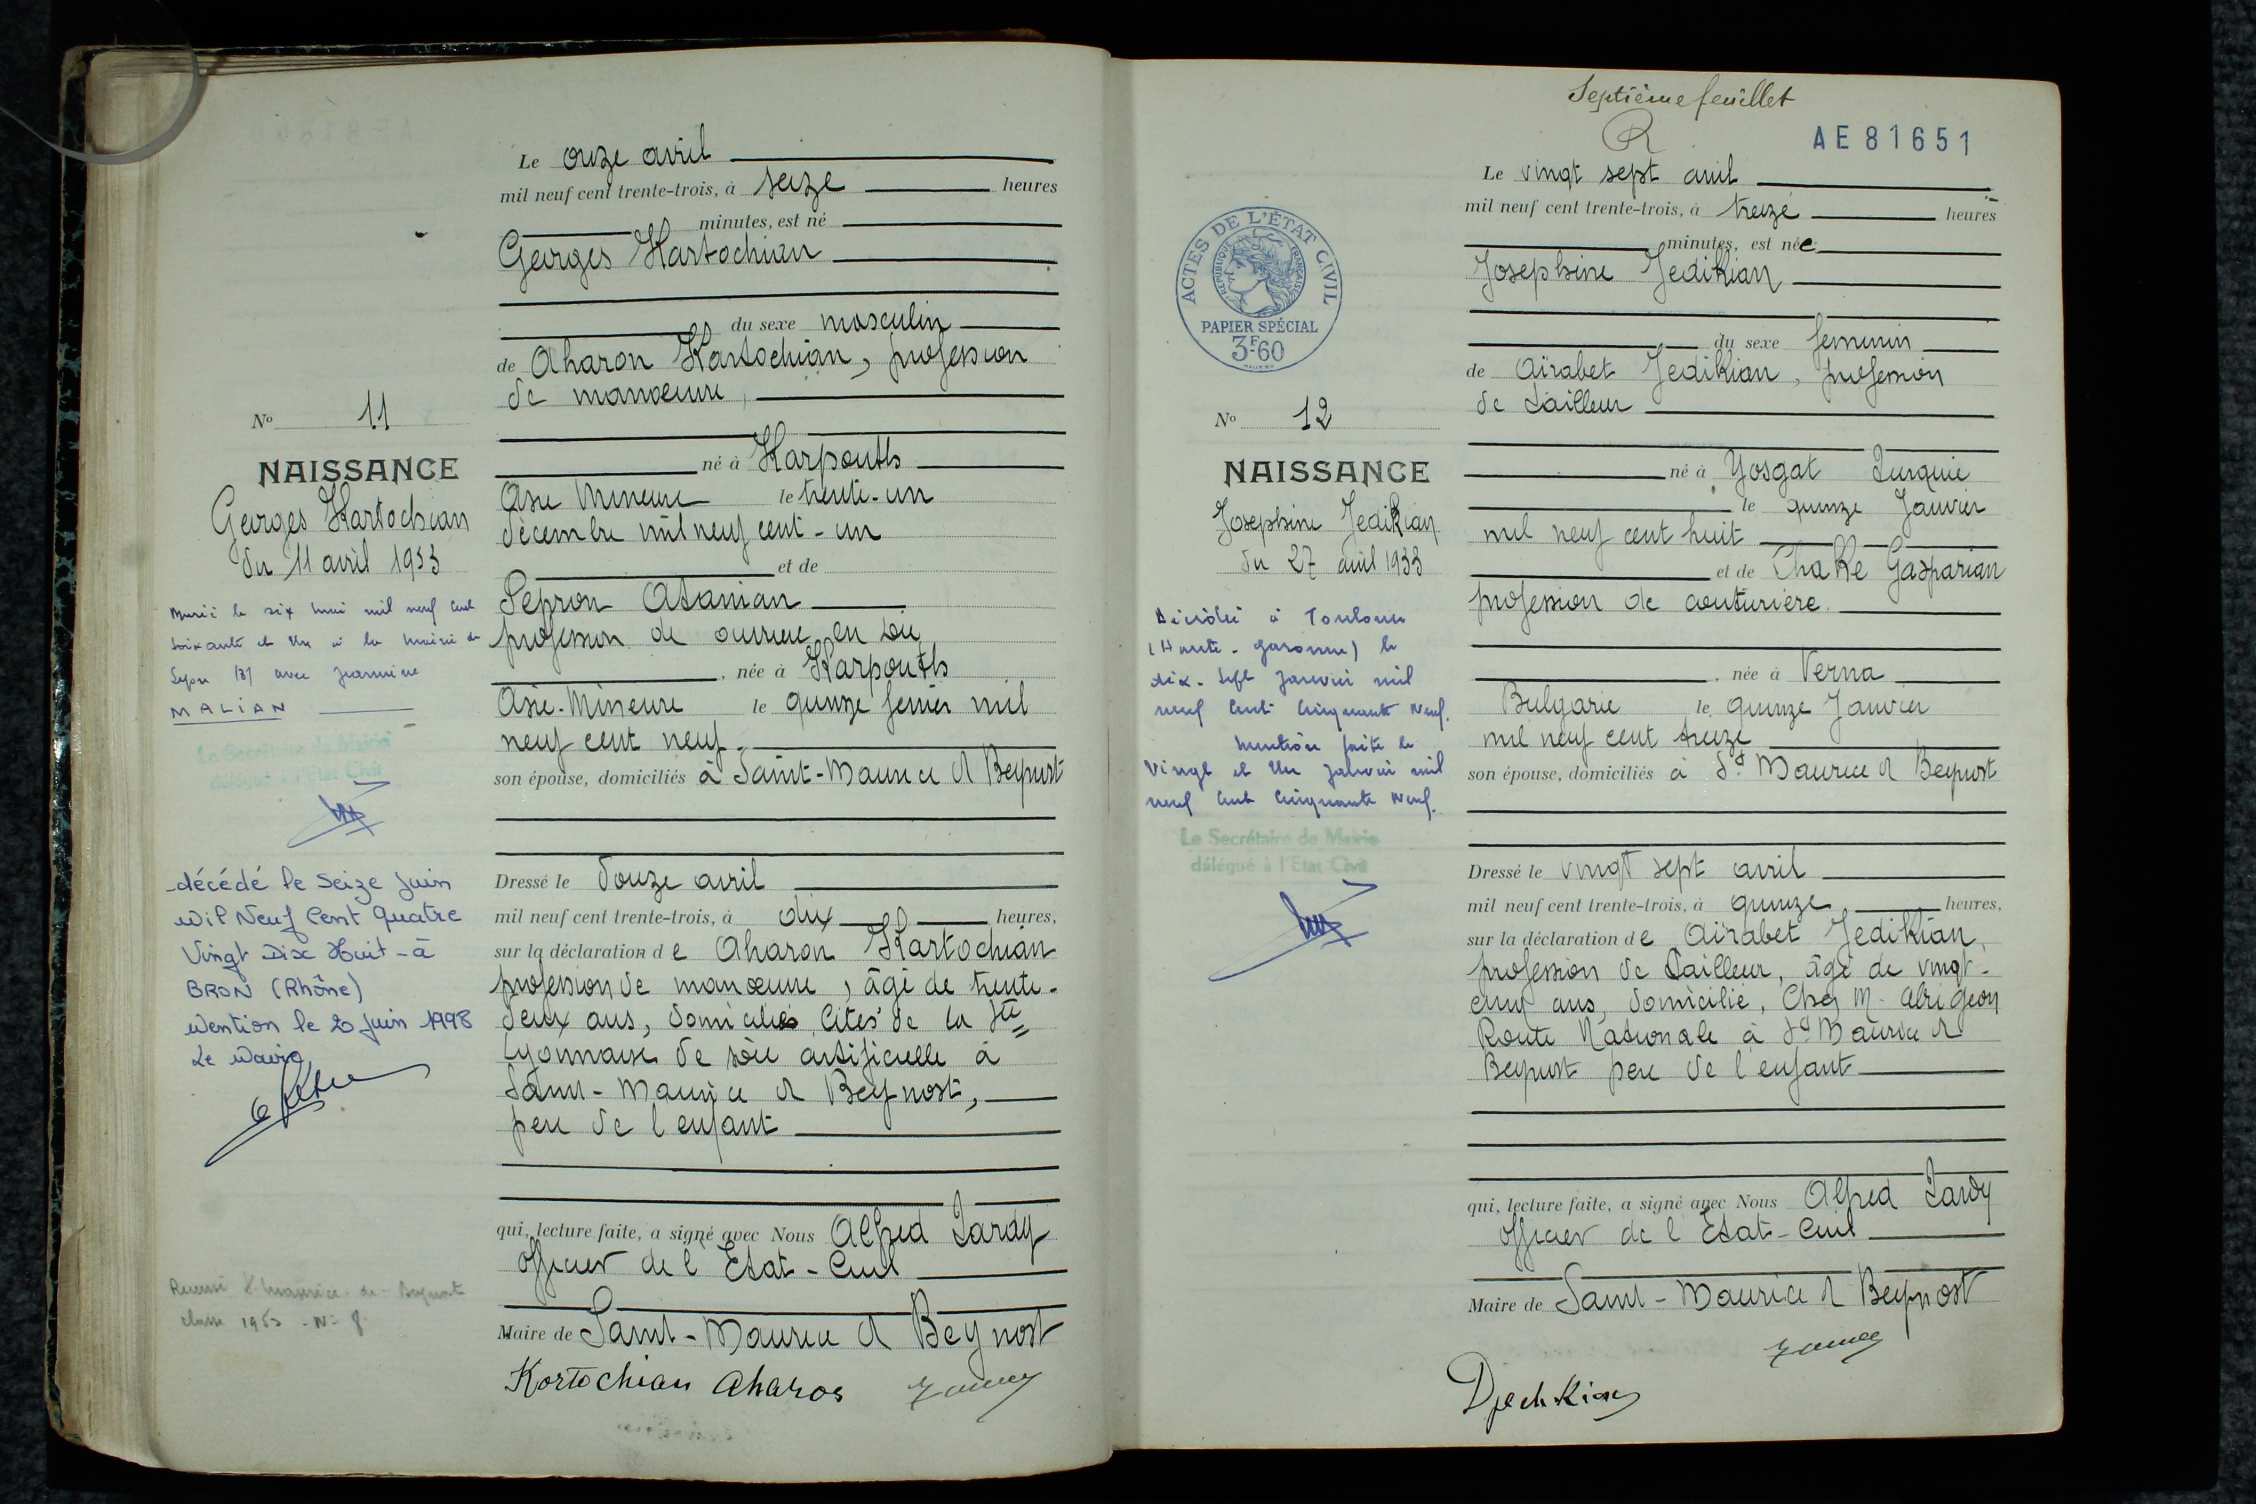 Le onze avril
mil neuf cent trente-trois, à seize heures
minutes, est né
Georges Kartochian
du sexe masculin
de Aharon Kartochian, profession
de manœuvre,
né à Karpouth
Asie Mineure le trente-un
décembre mil neuf cent-un
et de
Sepron Atamian
profession de ouvrière en soie
, née à Karpouth
Asie-Mineure le quinze février mil
neuf cent neuf
son épouse, domiciliés à Saint-Maurice d Beynost
Dressé le douze avril
mil neuf cent trente-trois, à dix heures,
sur la déclaration de Aharon Kartochian
profession de manœuvre, âgé de trente-
deux ans, domicilié Cités de la Sté
Lyonnaise de soie artificielle à
Saint-Maurice d Beynost,
père de l'enfant
qui, lecture faite, a signé avec Nous Alfred Jardy
officier de l'Etat-Civil
Maire de Saint-Maurice d Beynost
Kortochian Aharos
No 11
NAISSANCE
Georges Kartochian
du 11 avril 1933
Marié le six mai mil neuf cent
soixante et un à la mairie de
Lyon (3) avec Jeannine
MALIAN
Le Secrétaire de Mairie
délégué à l'Etat Civil
-décédé le Seize Juin
Mil Neuf Cent Quatre
Vingt Dix Huit-à
BRON (Rhône)
Mention le 20 Juin 1998
Le Maire
Recensé St Maurice-de-Beynost
classe 1953 - No 8
Septième feuillet
AE81651
Le vingt sept avril
mil neuf cent trente-trois, à treize heures
minutes, est née
Josephine Jedikian
du sexe féminin
de Aïrabet Jedikian, profession
de tailleur
né à Yosgat Turquie
le quinze Janvier
mil neuf cent huit
et de Chaké Gasparian
profession de couturière.
, née à Verna
Bulgarie le quinze Janvier
mil neuf cent treize
son épouse, domiciliés à St Maurice d Beynost
Dressé le vingt sept avril
mil neuf cent trente-trois, à quinze heures,
sur la déclaration de Aïrabet Jedikian,
profession de tailleur, âgé de vingt-
cinq ans, domicilié, Chez M. Abrigeon
Route Nationale à St Maurice d
Beynost père de l'enfant
qui, lecture faite, a signé avec Nous Alfred Jardy
officier de l'Etat-Civil
Maire de Saint-Maurice d Beynost
ACTES DE L'ÉTAT CIVIL
REPUBLIQUE FRANÇAISE
PAPIER SPÉCIAL
3F.60
No 12
NAISSANCE
Josephine Jedikian
du 27 avril 1933
Décédée à Toulouse
(Haute-Garonne) le
dix-sept Janvier mil
neuf cent cinquante neuf.
Mention faite le
vingt et un Janvier mil
neuf cent cinquante neuf.
Le Secrétaire de Mairie
délégué à l'Etat Civil